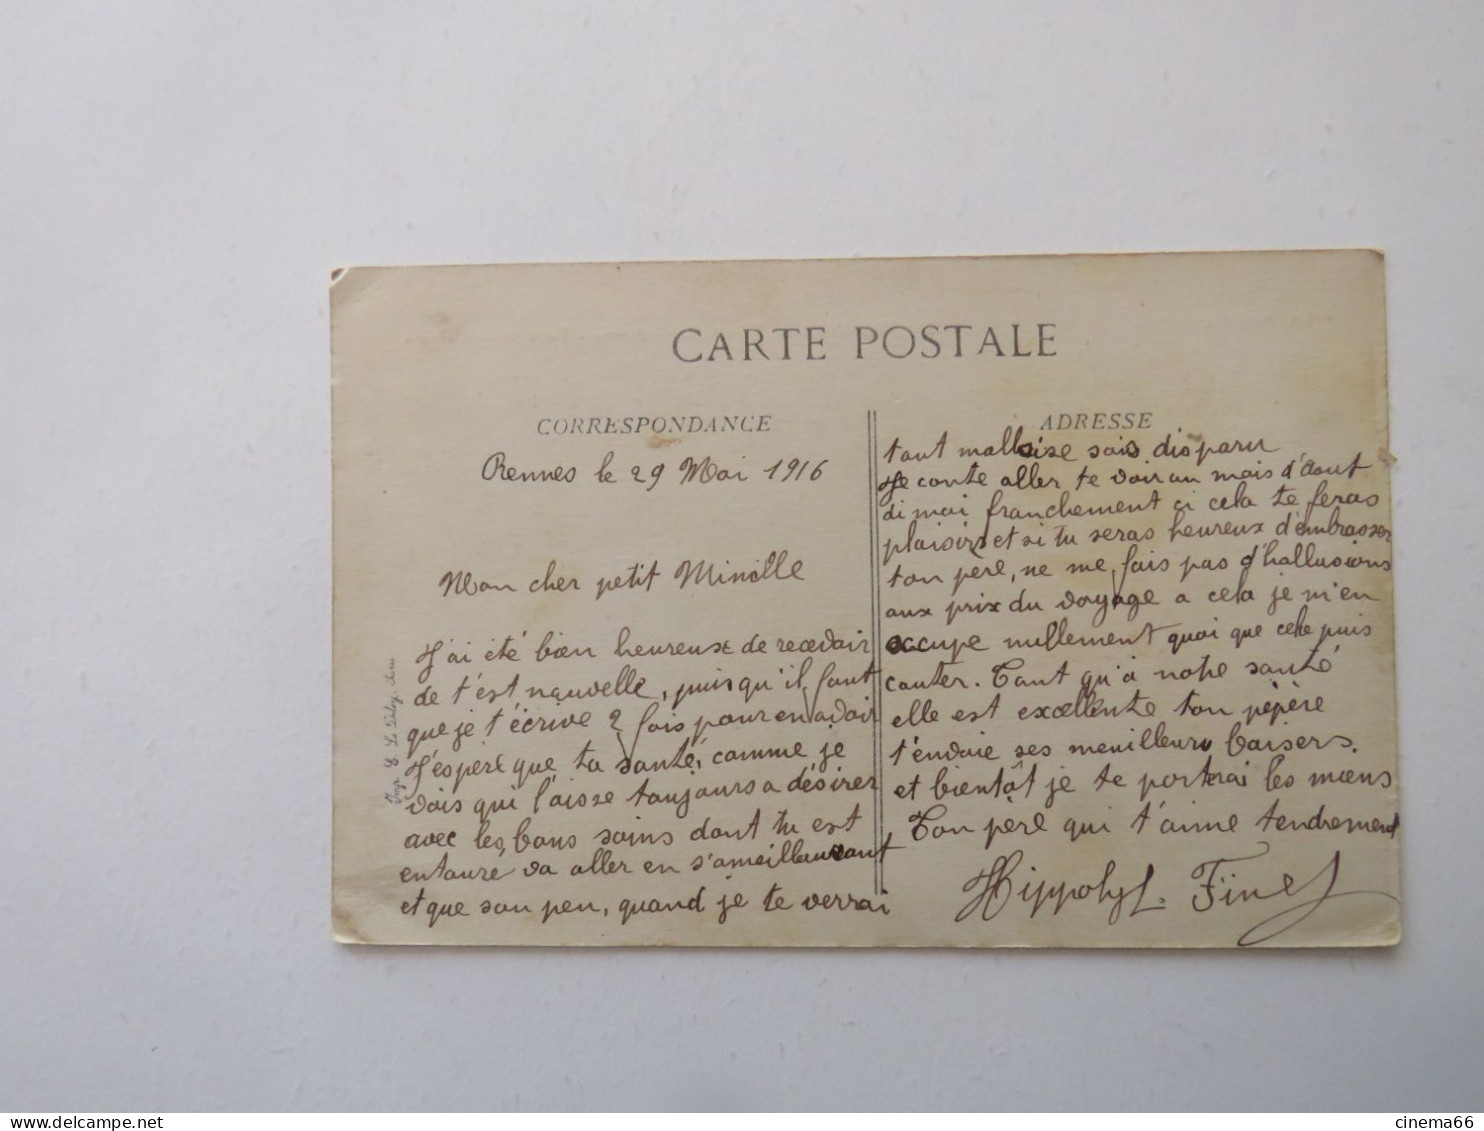 CARTE POSTALE
CORRESPONDANCE
Rennes le 29 Mai 1916
Mon cher petit Minille
J'ai été bien heureuse de recevoir
de t'est nouvelle, puisqu'il faut
que je t'écrive 2 fois pour en avoir
J'éspere que ta santé, comme je
vois qui l'aisse toujours a désirer
avec les bons soins dont tu est
entouré va aller en s'ameilleurant
et que son peu, quand je te verrai
Imp. E. Le Deley, Paris
ADRESSE
tout mallaise sois disparu
Je conte aller te voir au mois d'Aout
di moi franchement ci cela te feras
plaisirs et si tu seras heureux d'embrasser
ton père, ne me fais pas d'hallusions
aux prix du voyage a cela je m'en
occupe nullement quoi que cele puis
couter. Tant qu'à notre santé
elle est excellente ton pépère
t'envoie ses meuilleurs baisers.
et bientôt je te porterai les moens
Ton père qui t'aime tendrement
Hippolyt. Finet
cinema66